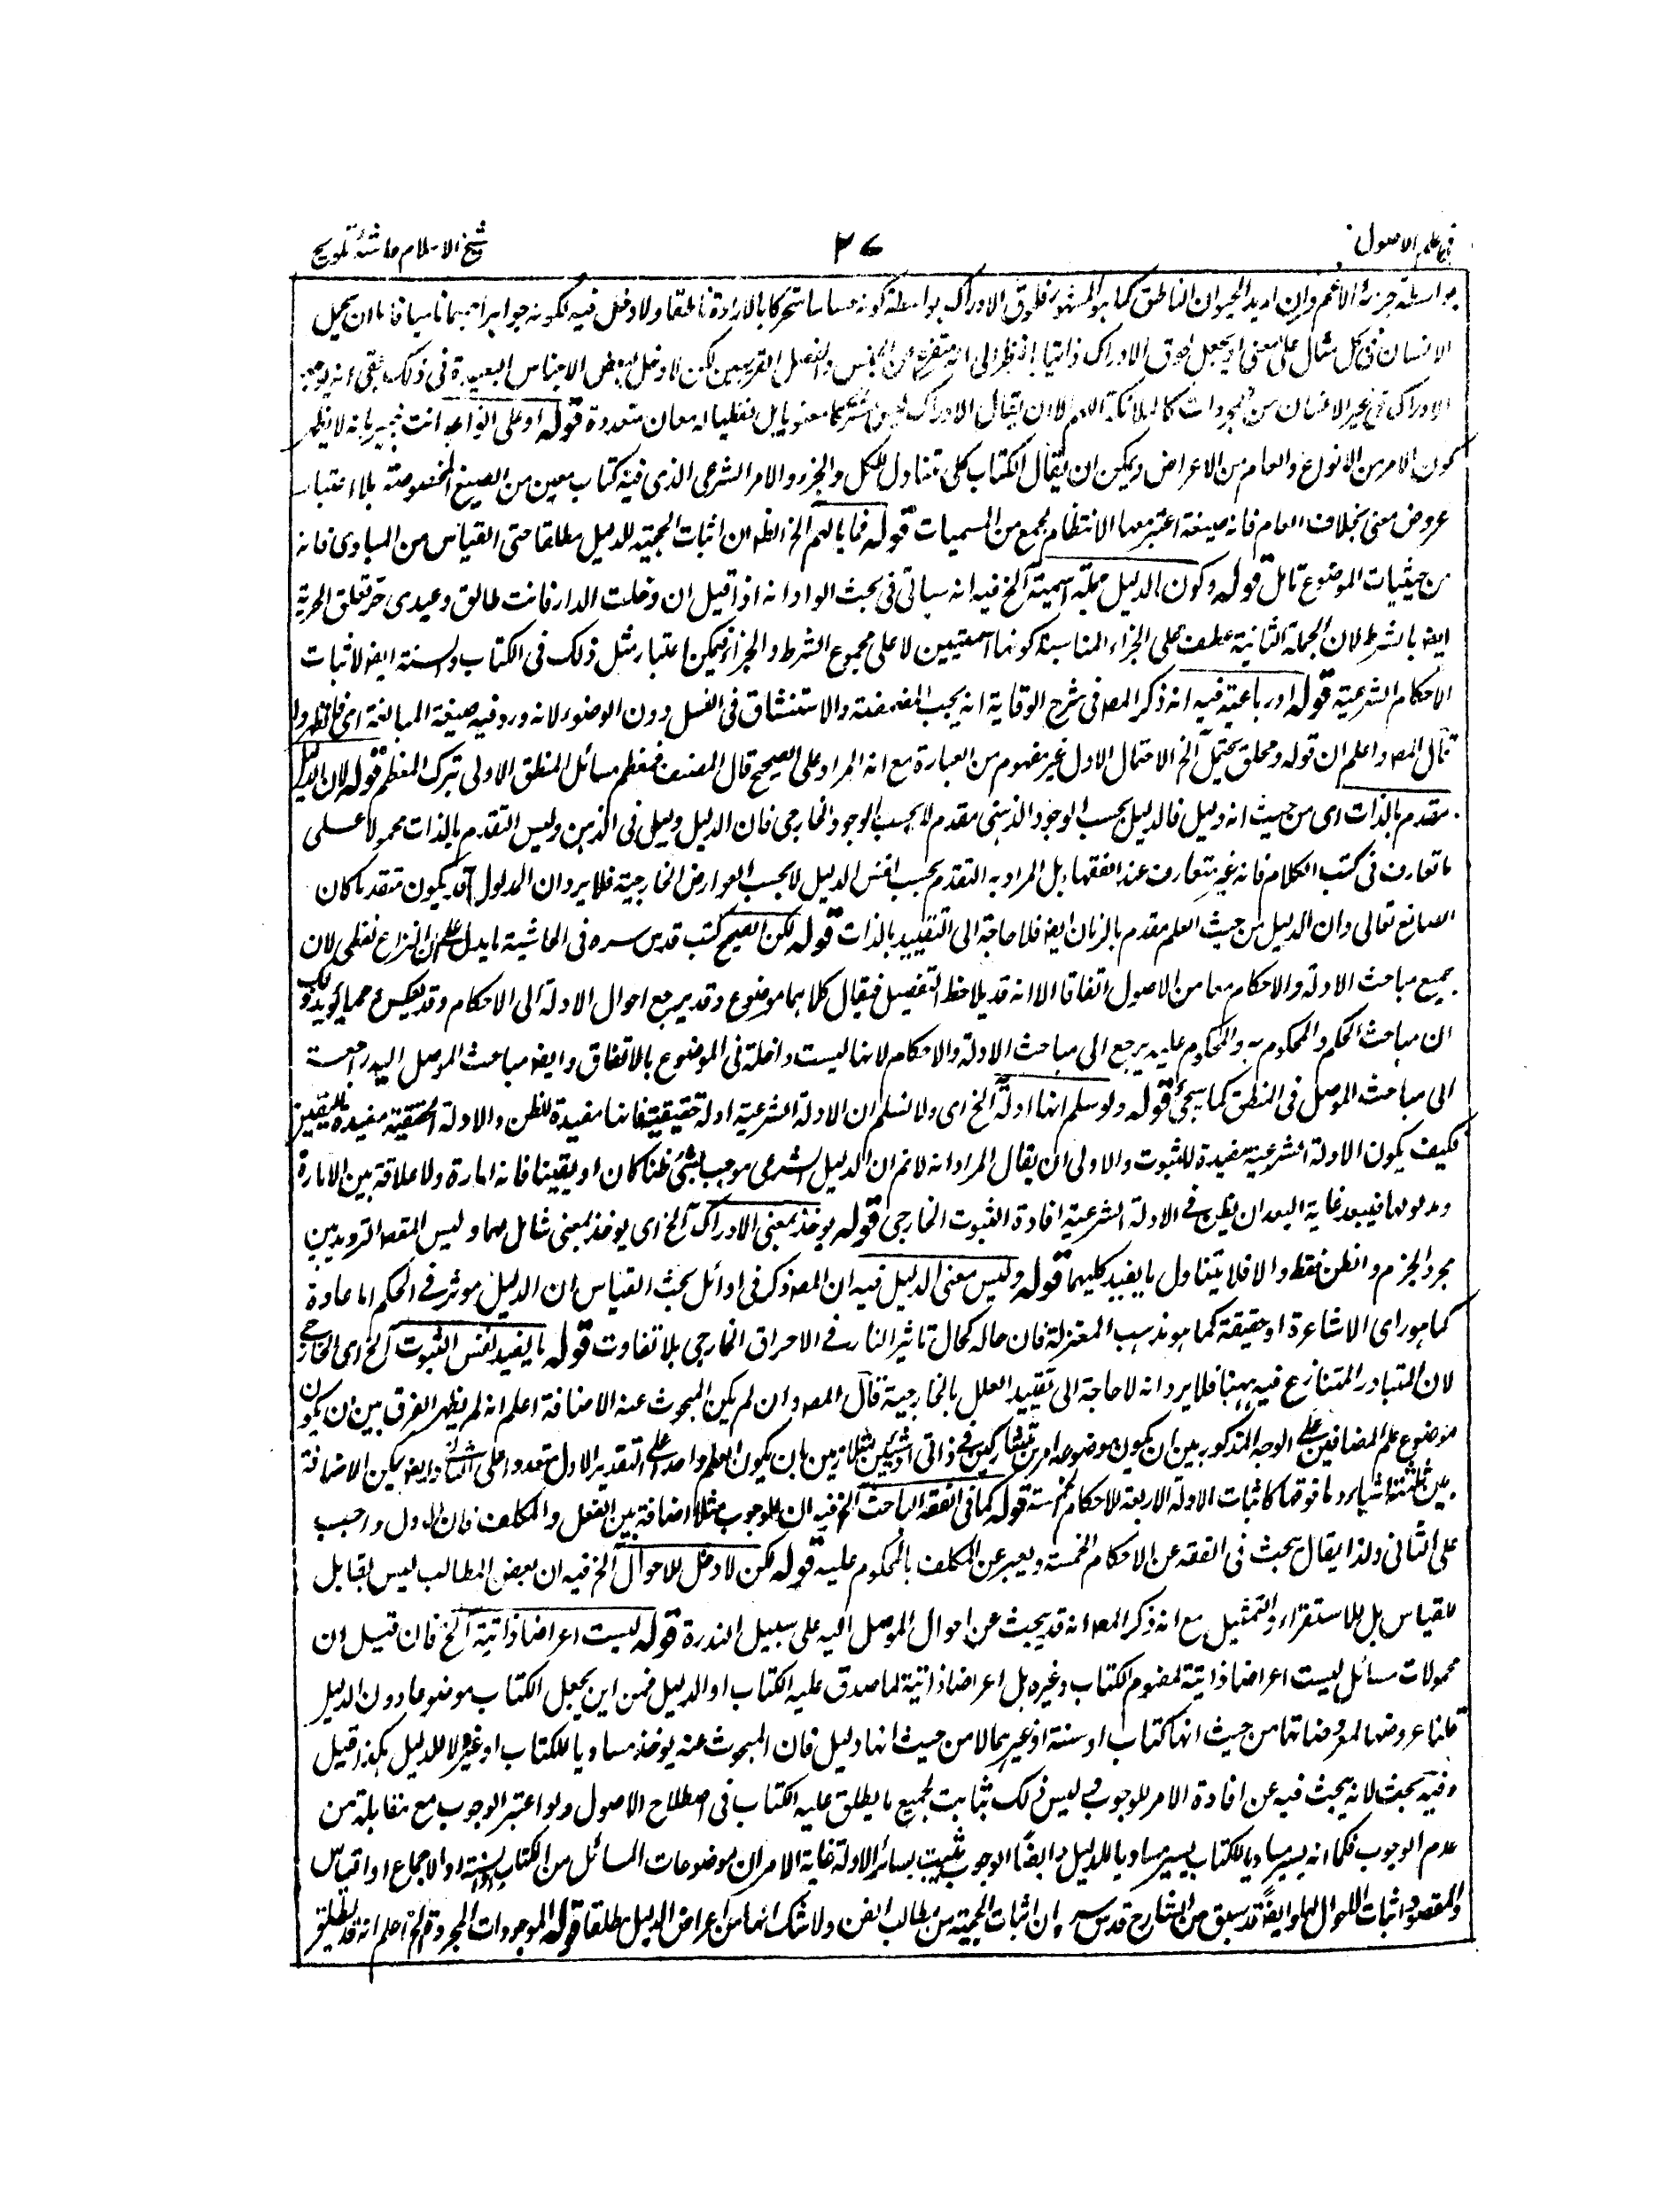 في علم الاصول
٢٧
شيخ الاسلام حاشية تلويح
بواسطة جزئه الاعم وان اريد الحيوان الناطق كما هو المشهور فلحوق الادراك بواسطة كونه حساسا متحركا بالارادة ناطقا ولا دخل فيه لكونه جوهرا جسمانا ميا فاما ان يحمل
الانسان في كل مثال على معنى او يجعل لحوق الادراك ذاتيا بالنظر الى انه متفرع من الجنس والفصل القريبين لكن لا دخل لبعض الاجناس البعيدة في ذلك بقي انه يوجد
الادراك في غير الانسان من المجردات كالملائكة اللهم الا ان يقال الادراك ليس مشتركا معنويا بل لفظيا له معان متعددة قوله او على انواعه انت خبير بانه لا يظهر
كون الامر من الانواع والعام من الاعراض ويمكن ان يقال الكتاب كلي تناول للكل والجزء والامر الشرعي الذي فيه كتاب معين من الصيغ المخصوصة بلا اعتبار
عروض معنى بخلاف العام فانه صيغة اعتبر معها الانتظام لجمع من المسميات قوله فما بالهم الخ الظ ان اثبات الحجية للدليل مطلقا حتى القياس من المبادى فانه
من حيثيات الموضوع تامل قوله وكون الدليل جملة اسمية الخ فيه انه سياتي في بحث الواو انه اذا قيل ان دخلت الدار فانت طالق وعبدي حر تعلق الحرية
ايضا بالشرط لان الجملة الثانية عطف على الجزاء المناسبة كونهما اسميتين لا على مجموع الشرط والجزاء فيمكن اعتبار مثل ذلك في الكتاب والسنة ايضا لاثبات
الاحكام الشرعية قوله او رباعية فيه انه ذكر المص في شرح الوقاية انه يجب المضمضة والاستنشاق في الغسل دون الوضوء لانه ورد فيه صيغة المبالغة اي فاطهروا
قال المص واعلم ان قوله ومحلق يحتمل الخ الاحتمال الاول غير مفهوم من العبارة مع انه المراد على الصحيح قال المصنف فمعظم مسائل المنطق الاولى ترك المعظم قوله لان الدليل
مقدم بالذات اى من حيث انه دليل فالدليل بحسب الوجود الذهني مقدم لا بحسب الوجود الخارجي فان الدليل دليل في الذهن وليس التقدم بالذات محمولا على
ما تعارف في كتب الكلام فانه غير متعارف عند الفقهاء بل المراد به التقدم بحسب نفس الدليل لا بحسب العوارض الخارجية فلا يرد ان المدلول قد يكون متقدما كان
الصانع تعالى وان الدليل من حيث العلم مقدم بالزمان ايضا فلا حاجة الى التقييد بالذات قوله لكن الصحيح كتب قدس سره في الحاشية ما يدل على ان النزاع لفظي لان
جميع مباحث الادلة والاحكام معا من الاصول اتفاقا الا انه قد يلاحظ التفصيل فيقال كلاهما موضوع وقد يرجع احوال الادلة الى الاحكام وقد يعكس ومما يؤيد ذلك
ان مباحث الحكم والمحكوم به والمحكوم عليه يرجع الى مباحث الادلة والاحكام لانها ليست داخلة في الموضوع بالاتفاق وايضا مباحث الموصل اليه راجعة
الى مباحث الموصل في المنطق كما سيجئ قوله ولو سلم انها ادلة الخ اى ولا نسلم ان الادلة الشرعية ادلة حقيقية فانها مفيدة للظن والادلة الحقيقية مفيدة لليقين
فكيف يكون الادلة الشرعية مفيدة للثبوت والاولى ان يقال المراد انه لا نم ان الدليل الشرعى موجب لشئ ظنا كان او يقينا فانه امارة ولا علاقة بين الامارة
ومدلولها فيبعد غاية البعد ان يظن في الادلة الشرعية افادة الثبوت الخارجى قوله يوخذ بمعنى الادراك الخ اى يوخذ بمعنى شامل لهما وليس المقصد الترديد بين
مجرد الجزم والظن فقط والا فلا يتناول ما يفيد كليهما قوله وليس معنى الدليل فيه ان المص ذكر في اوائل بحث القياس ان الدليل موثر في الحكم اما عادة
كما هو راى الاشاعرة او حقيقة كما هو مذهب المعتزلة فان حاله كحال تاثير النار في الاحراق الخارجى بلا تفاوت قوله ما يفيد نفس الثبوت الخ اى الخارجي
لان المتبادر المتنازع فيه ههنا فلا يرد انه لا حاجة الى تقييد العلل بالخارجية قال المص وان لم يكن المبحوث عنه الاضافة اعلم انه لم يظهر الفرق بين ان يكون
موضوع علم المضافين على الوجه المذكور بين ان يكون موضوعه امرين متشاركين في ذاتى او شيئين متلازمين بان يكون العلم واحدا على التقدير الاول متعددا على الثاني وايضا يمكن الاضافة
بين ثلثة اشياء وما فوقها كاثبات الادلة الاربعة للاحكام الخمسة قوله كما في الفقه الباحث الخ فيه ان للوجوب مثلا اضافة بين الفعل والمكلف فان الاول واجب
على الثاني ولذا يقال يبحث في الفقه عن الاحكام الخمسة ويعبر عن المكلف بالمحكوم عليه قوله لكن لا دخل للاحوال الخ فيه ان بعض المطالب ليس بقابل
للقياس بل للاستقراء والتمثيل مع انه ذكر المص انه قد يبحث عن احوال الموصل اليه على سبيل الندرة قوله ليست اعراضا ذاتية الخ فان قيل ان
محمولات مسائل ليست اعراضا ذاتية لمفهوم الكتاب وغيره بل اعراضا ذاتية لما صدق عليه الكتاب او الدليل فمن اين يجعل الكتاب موضوعا دون الدليل
قلنا عروضها لمعروضاتها من حيث انها كتاب او سنة او غيرهما لا من حيث انها دليل فان المبحوث عنه يوخذ مساويا للكتاب او غيره لا للدليل هكذا قيل
وفيه بحث لانه يبحث فيه عن افادة الامر للوجوب وليس ذلك بثابت لجميع ما يطلق عليه الكتاب في اصطلاح الاصول ولو اعتبر الوجوب مع مقابلة من
عدم الوجوب فكما انه يصير مساويا للكتاب يصير مساويا للدليل وايضا الوجوب يثبت بسائر الادلة غاية الامر ان موضوعات المسائل من الكتاب او السنة او الاجماع او القياس
والمقصود اثبات الاحوال لها وايضا قد سبق من الشارح قدس سره ان اثبات الحجية من مطالب الفن ولا شك انها من اعراض الدليل مطلقا قوله الموجودات المجردة الخ اعلم انه قد يطلق